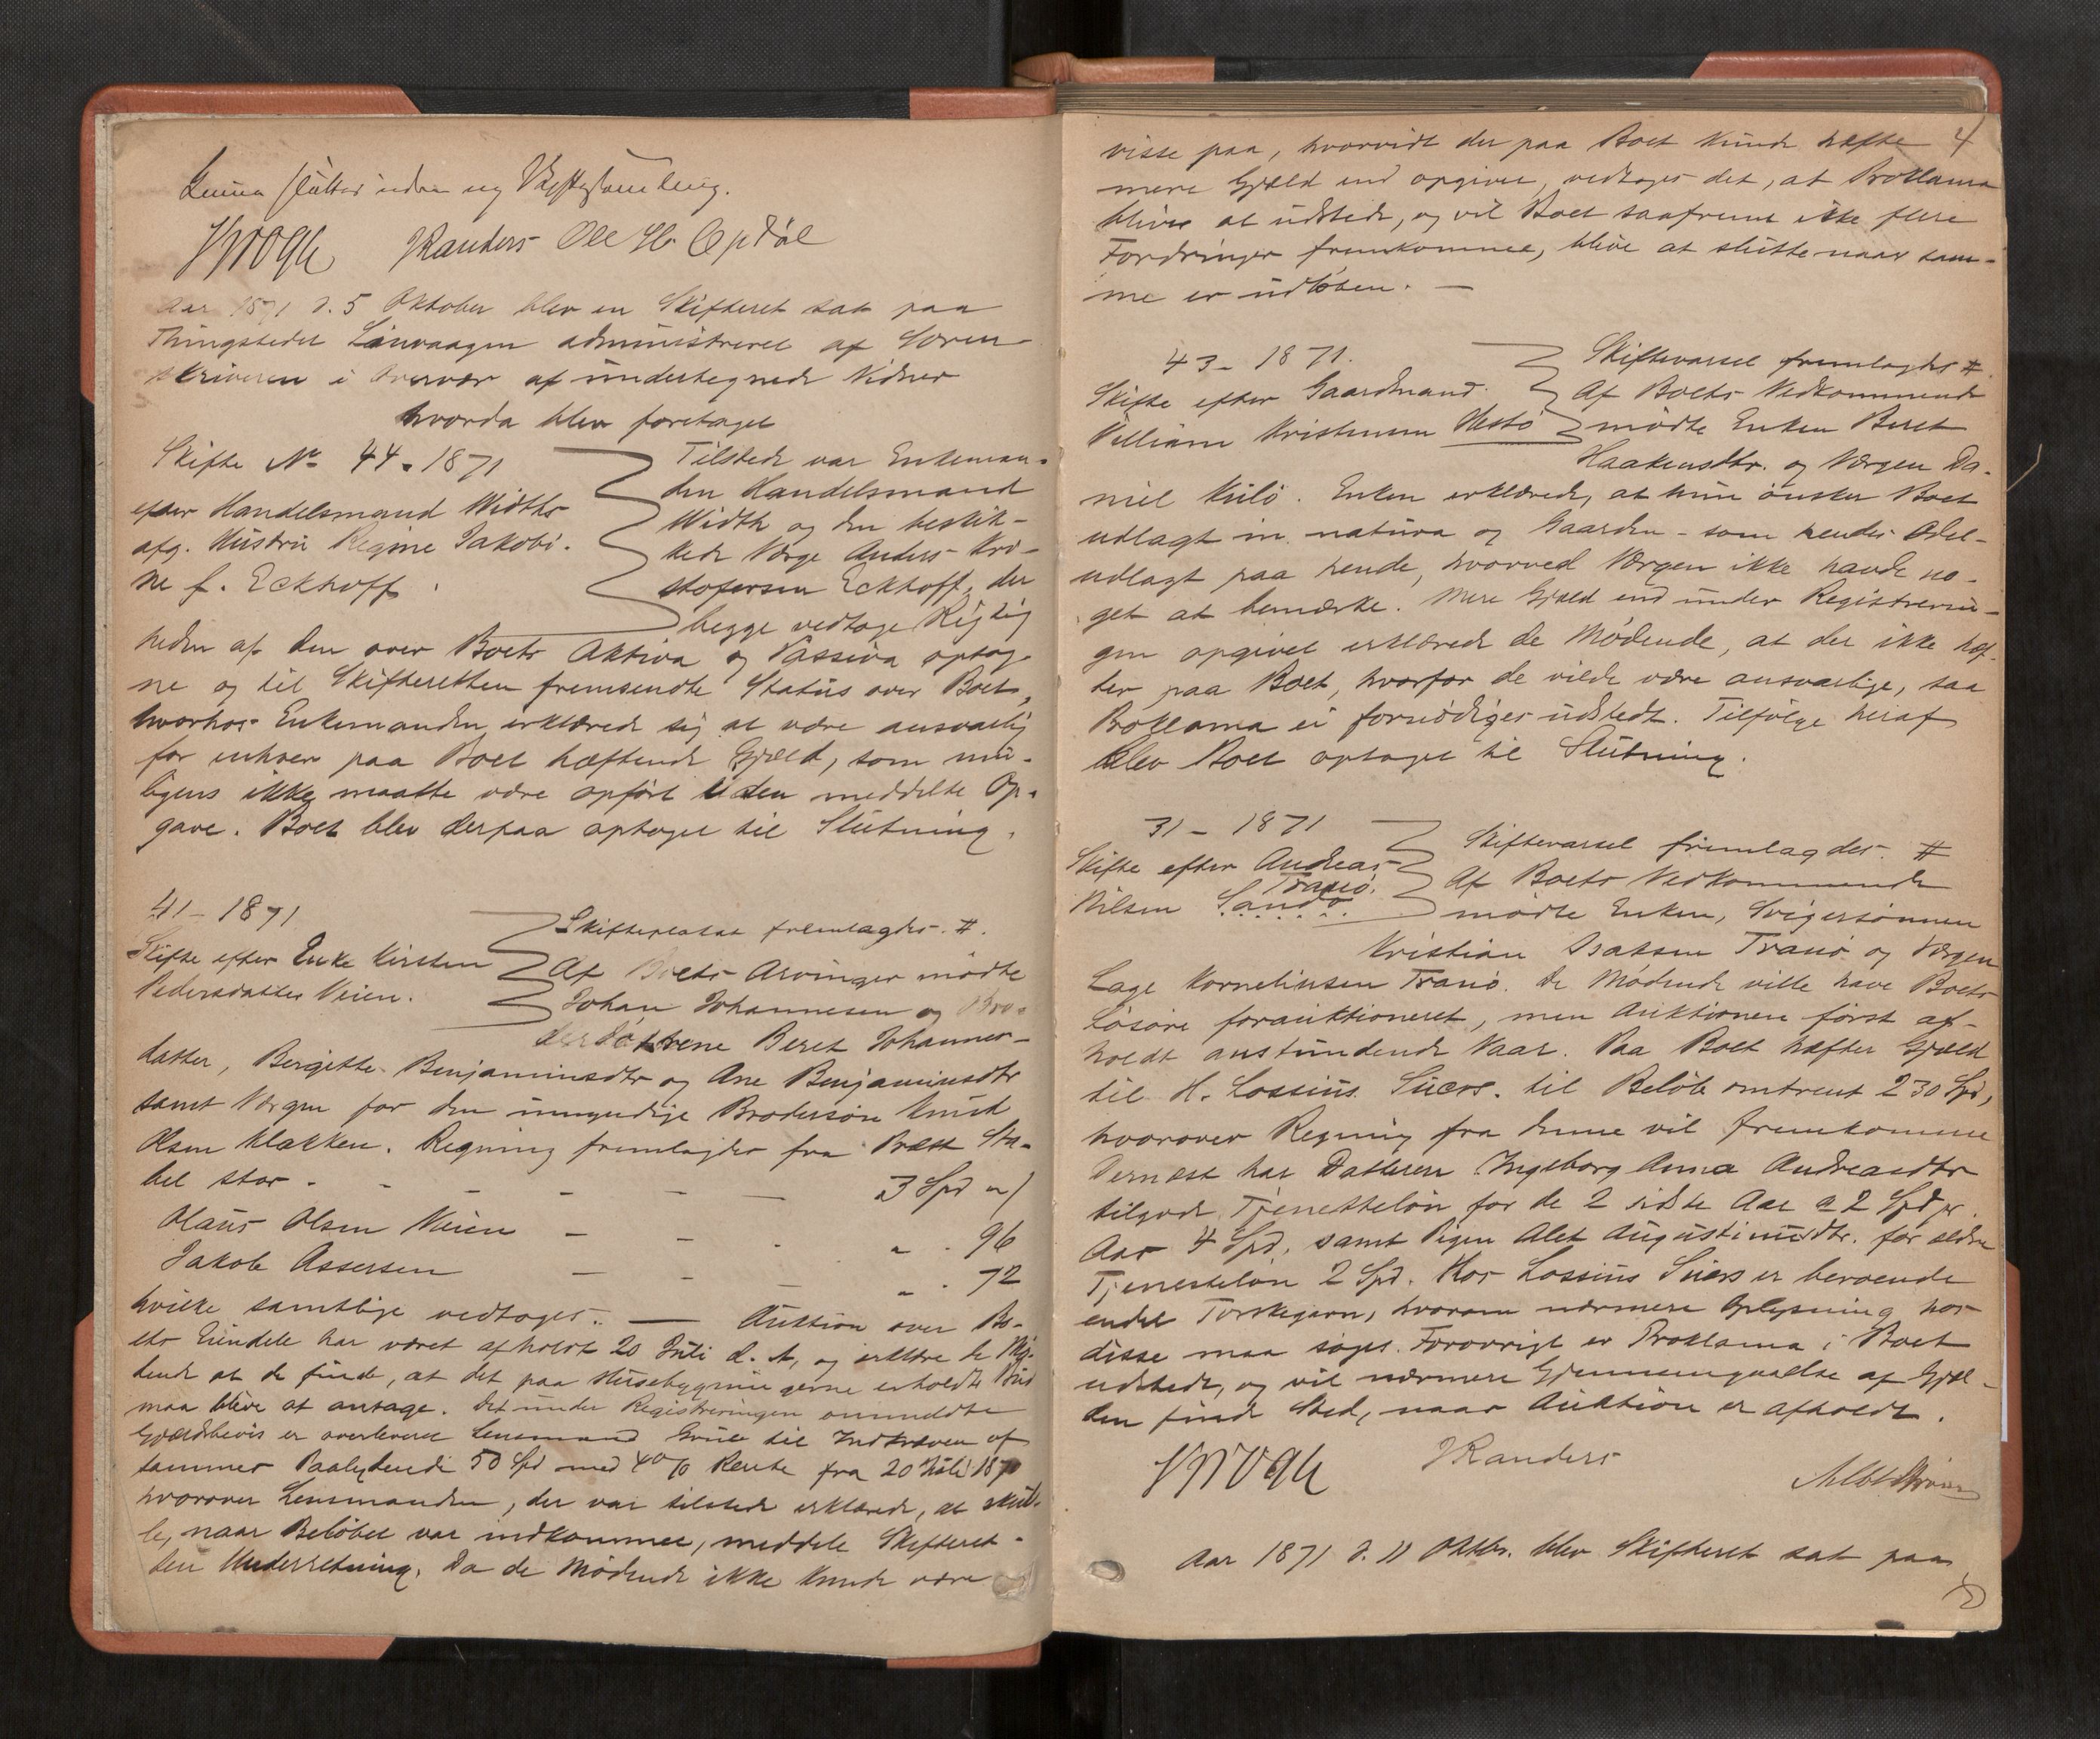 denne sluttes uden ny Skiftesamling.
Krogh JRanders Ole H. Opdøl
Aar 1871 d. 5 Oktober blev en Skifteret sat paa
Thingstedet Sinvaagen administreret af Soren-
skriveren i Overvær af undertegnede Vidner
hvorda blev foretaget
Skifte No 44 - 1871
efter Handelsmand Widths
afg. Hustru Regine Jakobi-
ne f. Eckhoff.
Tilstede var Enkeman-
den Handelsmand
Width og den beskik-
kede Værge Anders Kri-
stofersen Eckhoff, der
begge vedtoge Rigtig
heden af den over Boets Aktiva og Passiva optag-
ne og til Skifteretten fremsendte Status over Boet,
hvorhos Enkemanden erklærede sig at være ansvarlig
for enhver paa Boet hæftende Gjæld, som mu-
ligens ikke maatte være opført i den meddelte Op-
gave. Boet blev derpaa optaget til Slutning.
41 - 1871
Skifte efter Enke Kirsten
Pedersdatter Veien.
Skifteplakat fremlagdes #.
Af Boets Arvinger mødte
Johan Johannesen og Bro-
derdøttrene Beret Johannes-
datter, Bergitte Benjaminsdtr og Ane Benjaminsdtr
samt Værgen for den umyndige Brodersøn Knud
Olsen Klakken. Regning fremlagdes fra Præst Sta-
bel stor - - - - - 3 Spd "
Olaus Olsen Veien - - - " . 96
Jakob Assersen - - - " . 72
hvilke samtlige vedtoges. — Auktion over Bo-
ets Eiendele har været afholdt 20 Juli d. A, og erklære de Mø-
dende at de finde, at det paa Husebygningerne erholdte Bud
maa blive at antage. Det under Registreringen ommeldte
Gjældsbevis er overleveret Lensmand til Indkræven af
sammes Paalydende 50 Spd med 4% Rente fra 20 Juli 1870
hvorover Lensmanden, der var tilstede erklærede, at skul-
le, naar Beløbet var indkommet, meddele Skifteret-
ten Underretning. Da de Mødende ikke kunde være
4
visse paa, hvorvidt der paa Boet kunde hæfte
mere Gjæld end opgivet, vedtoges det, at Proklama
bliver at udstede, og vil Boet saafremt ikke flere
Fordringer fremkommer, blive at slutte naar sam-
me er udløben. —
43 - 1871.
Skifte efter Gaardmand
Villiam Kristensen Hestø
Skiftevarsel fremlagdes #.
Af Boets Vedkommende
mødte Enken Beret
Haakensdtr. og Værgen Da-
niel Kulø. Enken erklærede, at hun ønsker Boet
udlagt in natura og Gaarden - som hendes Odel -
udlagt paa hende, hvorved Værgen ikke havde no-
get at bemærke. Mere Gjæld end under Registrerin-
gen opgivet erklærede de Mødende, at der ikke hæf-
ter paa Boet, hvorfor de vilde være ansvarlige, saa
Proklama ei fornødiges udstedt. Tilfølge heraf
blev Boet optaget til Slutning.
31 - 1871
Skifte efter Andreas
Tranø.
Nilsen Sandø.
Skiftevarsel fremlagdes. #
Af Boets Vedkommende
mødte Enken, Svigersønnen
Kristian Isaksen Tranø og Værgen
Lage Kornelius​en Tranø. De Mødende ville have Boets
Løsøre forauktioneret, men Auktionen først af-
holdt anstundende Vaar. Paa Boet hæfter Gjæld
til H. Lossius Sucrs. til Beløb omtrent 230 Spd,
hvorover Regning fra denne vil fremkomme
Dernæst har Datteren Ingeborg Anna Andreasdtr
tilgode Tjenesteløn for de 2 sidste Aar a 2 Spd pr.
Aar 4 Spd, samt Pigen Alet Augustinusdtr. for ældre
Tjenesteløn 2 Spd. Hos Lossius Sucrs er beroende
endel Torskegarn, hvorom nærmere Oplysning hos
disse maa søges. Forøvrigt er Proklama i Boet
udstedt, og vil nærmere Gjennemgaaelse af Gjæl-
den finde Sted, naar Auktion er afholdt.
Krogh JRanders
Aar 1871 d. 11 Oktbr. blev Skifteret sat paa